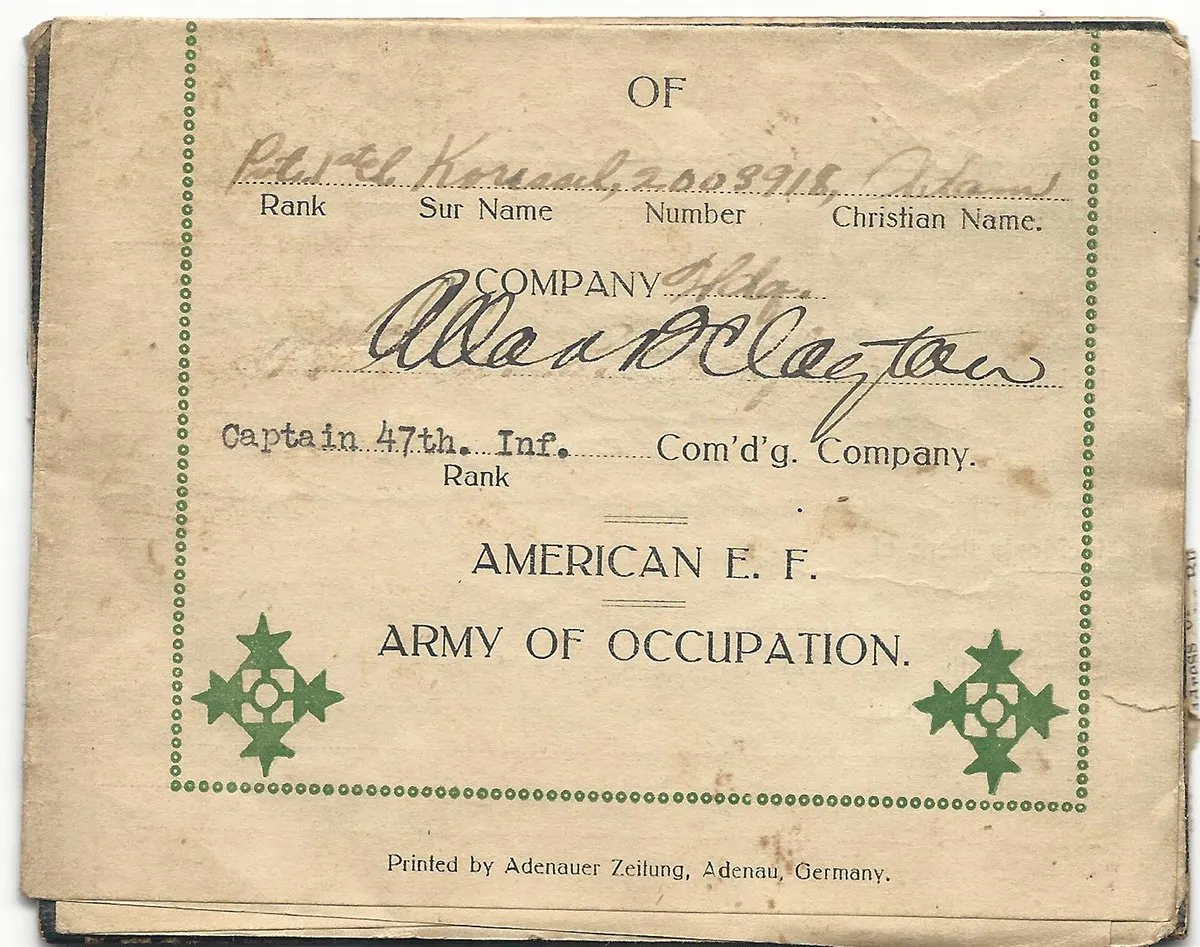 OF
Pvt. 1st Cl 2003918, Adam
Rank Sur Name Number Christian Name.
COMPANY Hdq.
Allan B Clayton
Captain 47th. Inf. Com'd'g. Company.
Rank
AMERICAN E. F.
ARMY OF OCCUPATION.
Printed by Adenauer Zeitung, Adenau, Germany.